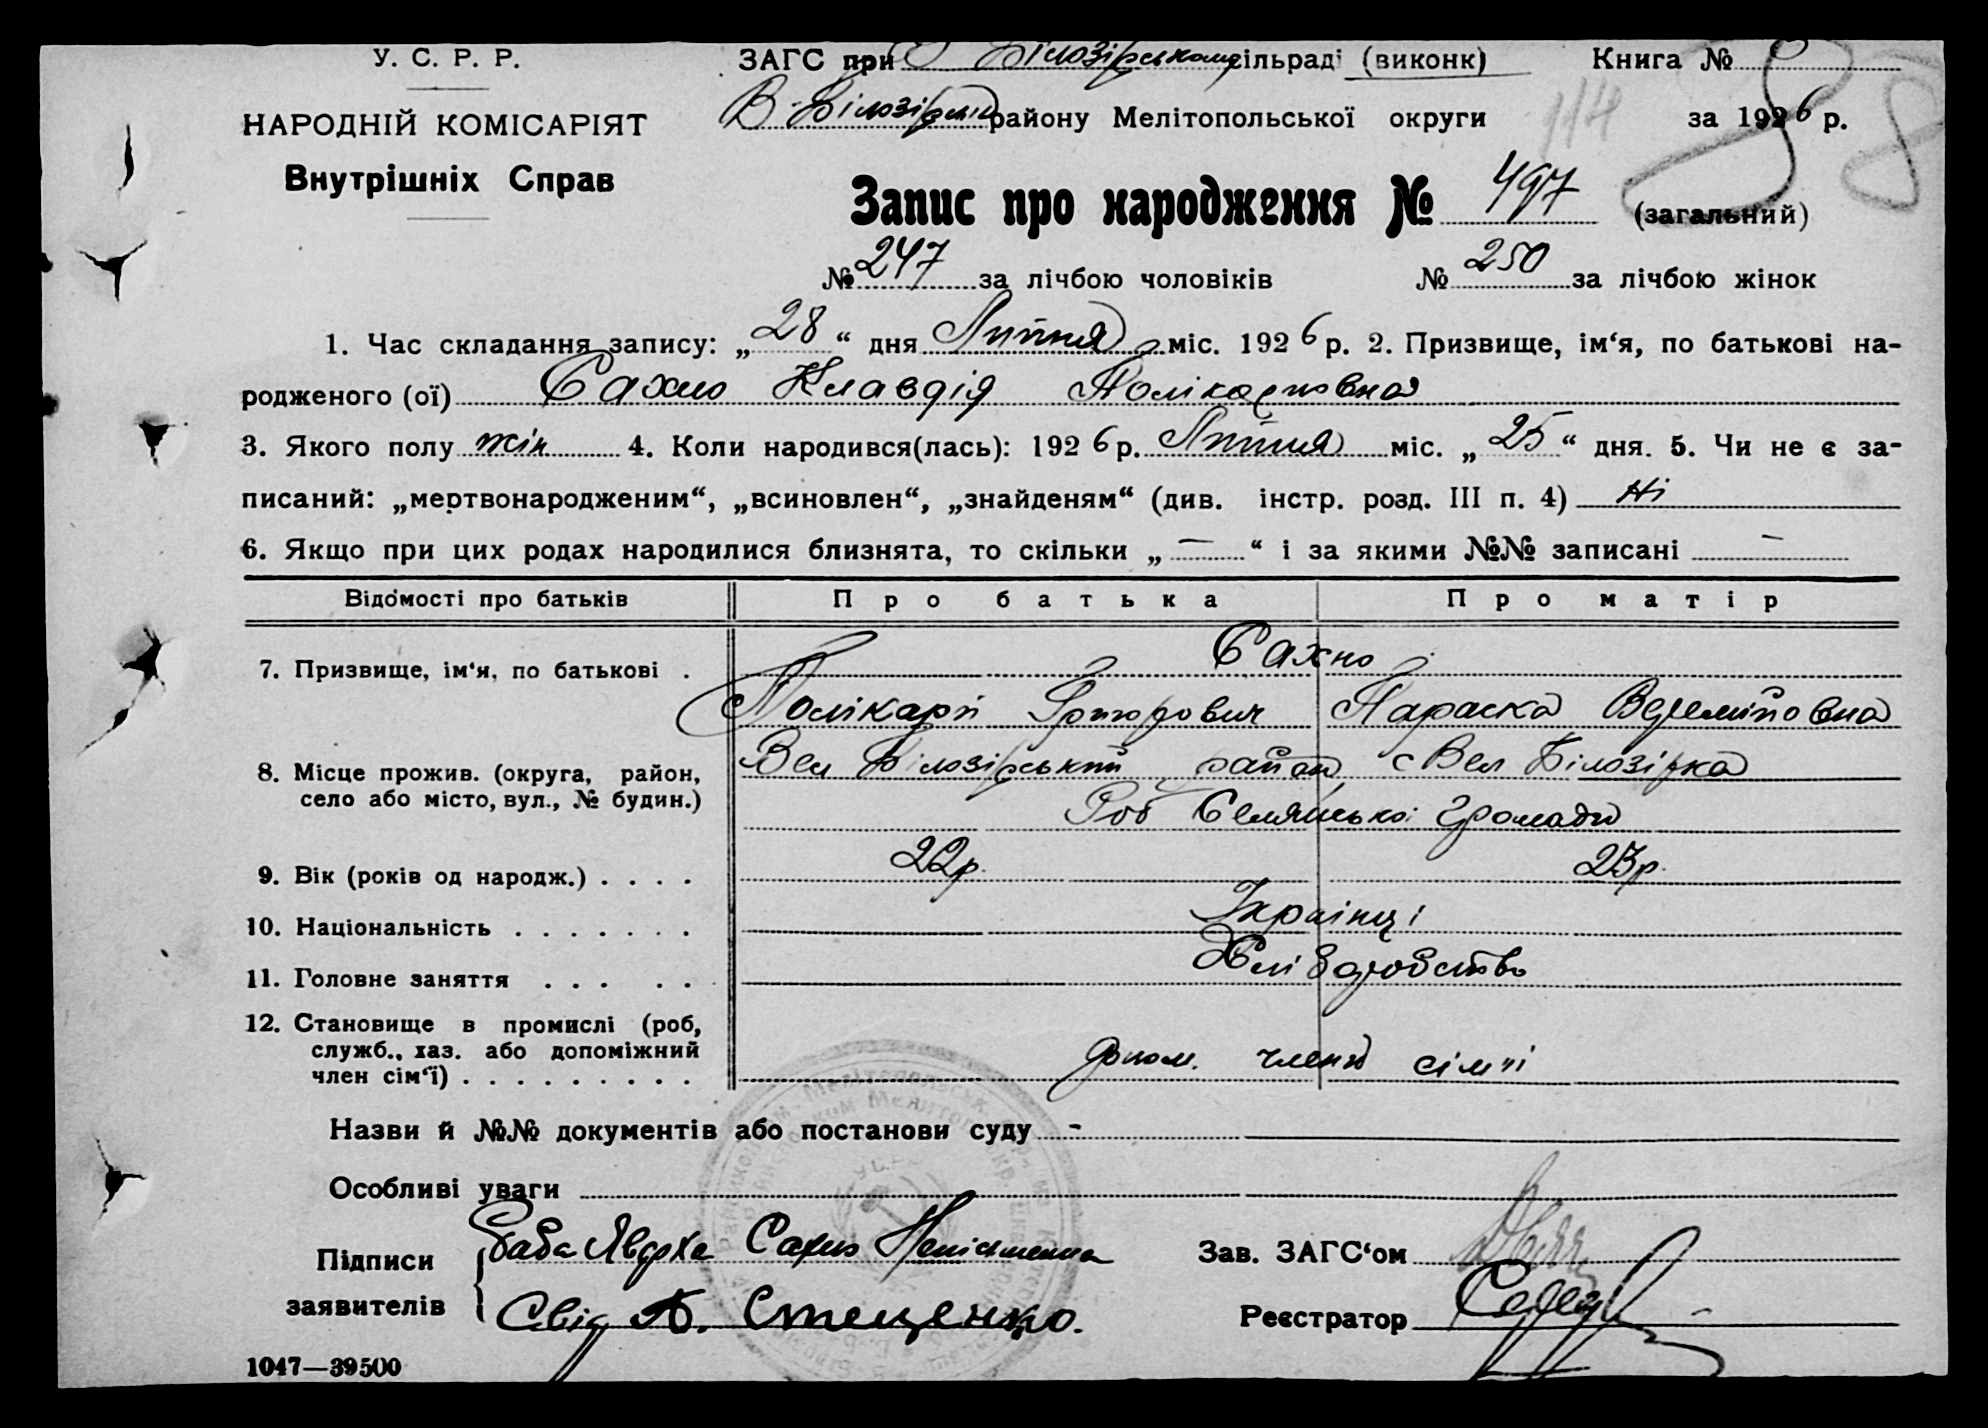 У. С. Р. Р.
НАРОДНІЙ КОМІСАРІЯТ
Внутрішніх Справ
ЗАГС при В Білозірському сільраді (виконк) Книга №
В-Білозірськ району Мелітопольської округи за 1926 р.
114
88
Запис про народження № 497 (загальний)
№ 247 за лічбою чоловіків № 250 за лічбою жінок
1. Час складання запису: „28“ дня Липня міс. 1926 р. 2. Призвище, ім‘я, по батькові на-
родженого (ої) Сахно Клавдія Полікарповна
3. Якого полу жін 4. Коли народився(лась): 1926 р. Липня міс. „25“ дня. 5. Чи не є за-
писаний: „мертвонародженим“, „всиновлен“, „знайденям“ (див. інстр. розд. III п. 4) Ні
6. Якщо при цих родах народилися близнята, то скільки „—“ і за якими №№ записані —
Відомості про батьків Про батька Про матір
Сахно
7. Призвище, ім‘я, по батькові .
Полікарп Григорович Параска Веремїовна
8. Місце прожив. (округа, район, Вел Білозірський район с Вел Білозірка
село або місто, вул., № будин.) Роб Селянської громади
9. Вік (років од народж.) . . . . 22р. 23р.
10. Національність . . . . . . . Українці
11. Головне заняття . . . . . Хліборобство
12. Становище в промислі (роб,
служб., хаз. або допоміжний
член сім‘ї) . . . . . . . . . допом. члени сімʼї
Назви й №№ документів або постанови суду -
Особливі уваги
Підписи баба Явдоха Сахно Неписьменна Зав. ЗАГС‘ом
заявителів Свід А. Стеценко. Реєстратор
1047—39500